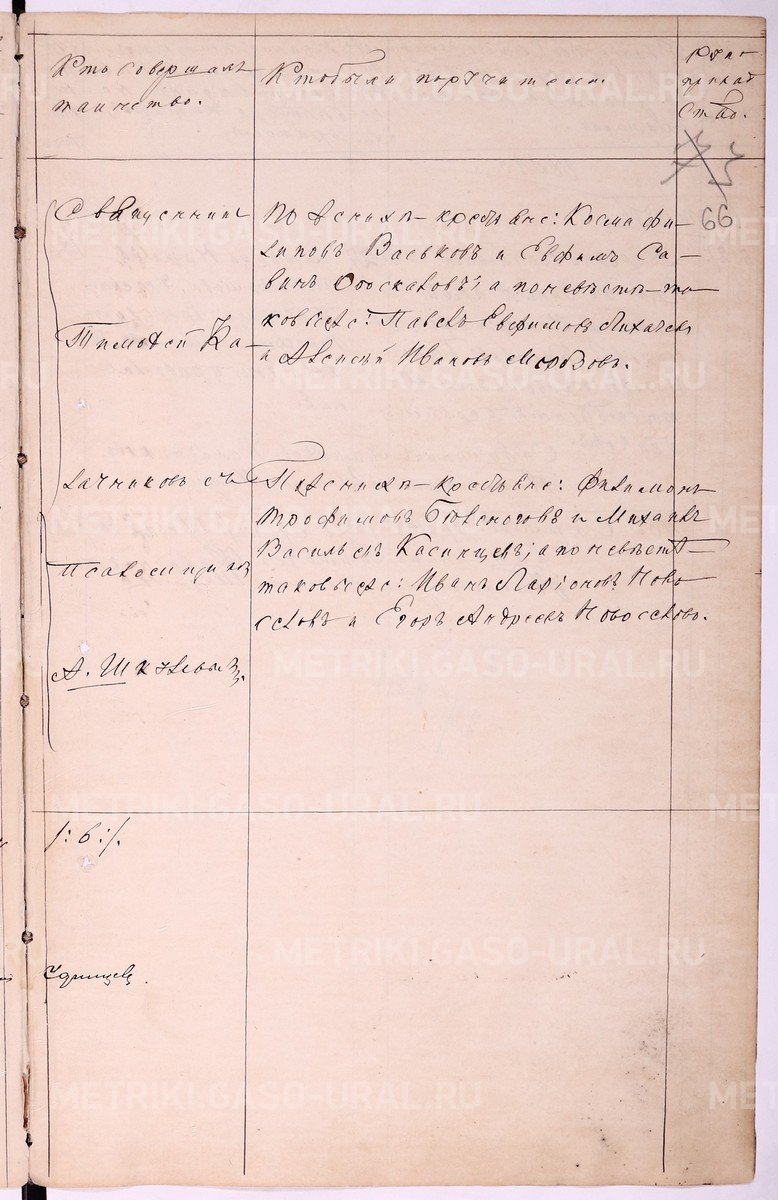 Кто совершалъ
таинство.
Кто были поручители.
Руко
приклад
ство.
66
Священникъ
Тимоѳей Ка-
лачниковъ съ
Псаломщикомъ
А.
По женихѣ - крестьяне: Косма Фи-
липовъ Васьковъ и Евфимъ Са-
винъ а по невѣстѣ - та-
ковые же: Павелъ Евфимовъ Лихачевъ
и Алексѣй Ивановъ Морозовъ.
По женихѣ - крестьяне: Филимонъ
Трофимовъ и Михаилъ
Васильевъ а по невѣстѣ -
таковые же: Иванъ Ларіоновъ Ново-
селовъ и Егоръ Андреевъ Новоселовъ.
/:6:/.
METRIKI.GASO-URAL.RU